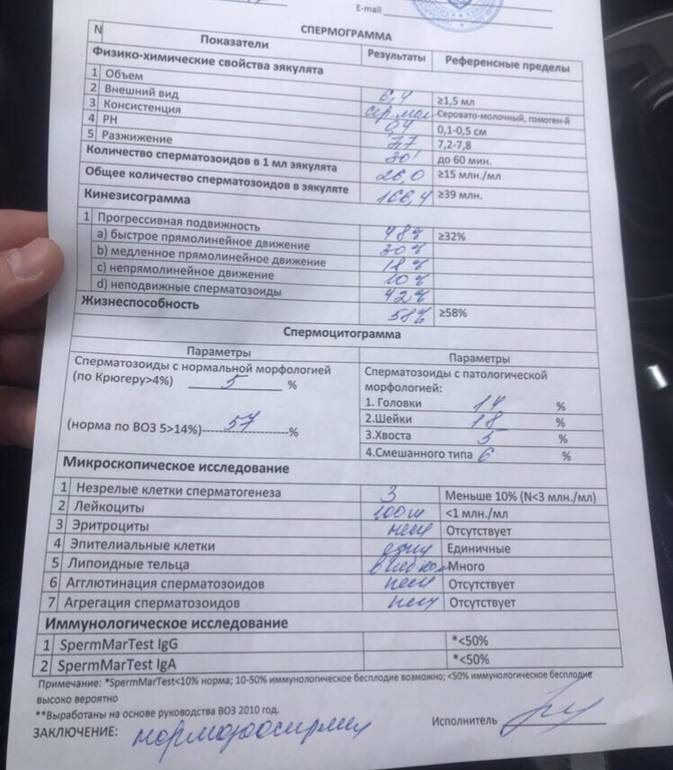 E-mail
СПЕРМОГРАММА
N Показатели Результаты Референсные пределы
Физико-химические свойства эякулята
1 Объем 6,4 ≥1,5 мл
2 Внешний вид сер. мол Серовато-молочный, гомоген-й
3 Консистенция 0,4 0,1-0,5 см
4 РН 7,7 7,2-7,8
5 Разжижение 30' до 60 мин.
Количество сперматозоидов в 1 мл эякулята 26,0 ≥15 млн./мл
Общее количество сперматозоидов в эякуляте 166,4 ≥39 млн.
Кинезисограмма
1 Прогрессивная подвижность 48% ≥32%
a) быстрое прямолинейное движение 30%
b) медленное прямолинейное движение 18%
c) непрямолинейное движение 10%
d) неподвижные сперматозоиды 42%
Жизнеспособность 58% ≥58%
Спермоцитограмма
Параметры Параметры
Сперматозоиды с нормальной морфологией
(по Крюгеру>4%) 5 %
(норма по ВОЗ 5>14%) 57 %
Сперматозоиды с патологической
морфологией:
1. Головки 14 %
2.Шейки 18 %
3.Хвоста 5 %
4.Смешанного типа 6 %
Микроскопическое исследование
1 Незрелые клетки сперматогенеза 3 Меньше 10% (N<3 млн./мл)
2 Лейкоциты <1 млн./мл
3 Эритроциты нет Отсутствует
4 Эпителиальные клетки един Единичные
5 Липоидные тельца Много
6 Агглютинация сперматозоидов нет Отсутствует
7 Агрегация сперматозоидов нет Отсутствует
Иммунологическое исследование
1 SpermMarTest IgG *<50%
2 SpermMarTest IgA *<50%
Примечание: *SpermMarTest<10% норма; 10-50% иммунологическое бесплодие возможно; <50% иммунологическое бесплодие
высоко вероятно
**Выработаны на основе руководства ВОЗ 2010 год.
ЗАКЛЮЧЕНИЕ: нормозооспермия Исполнитель